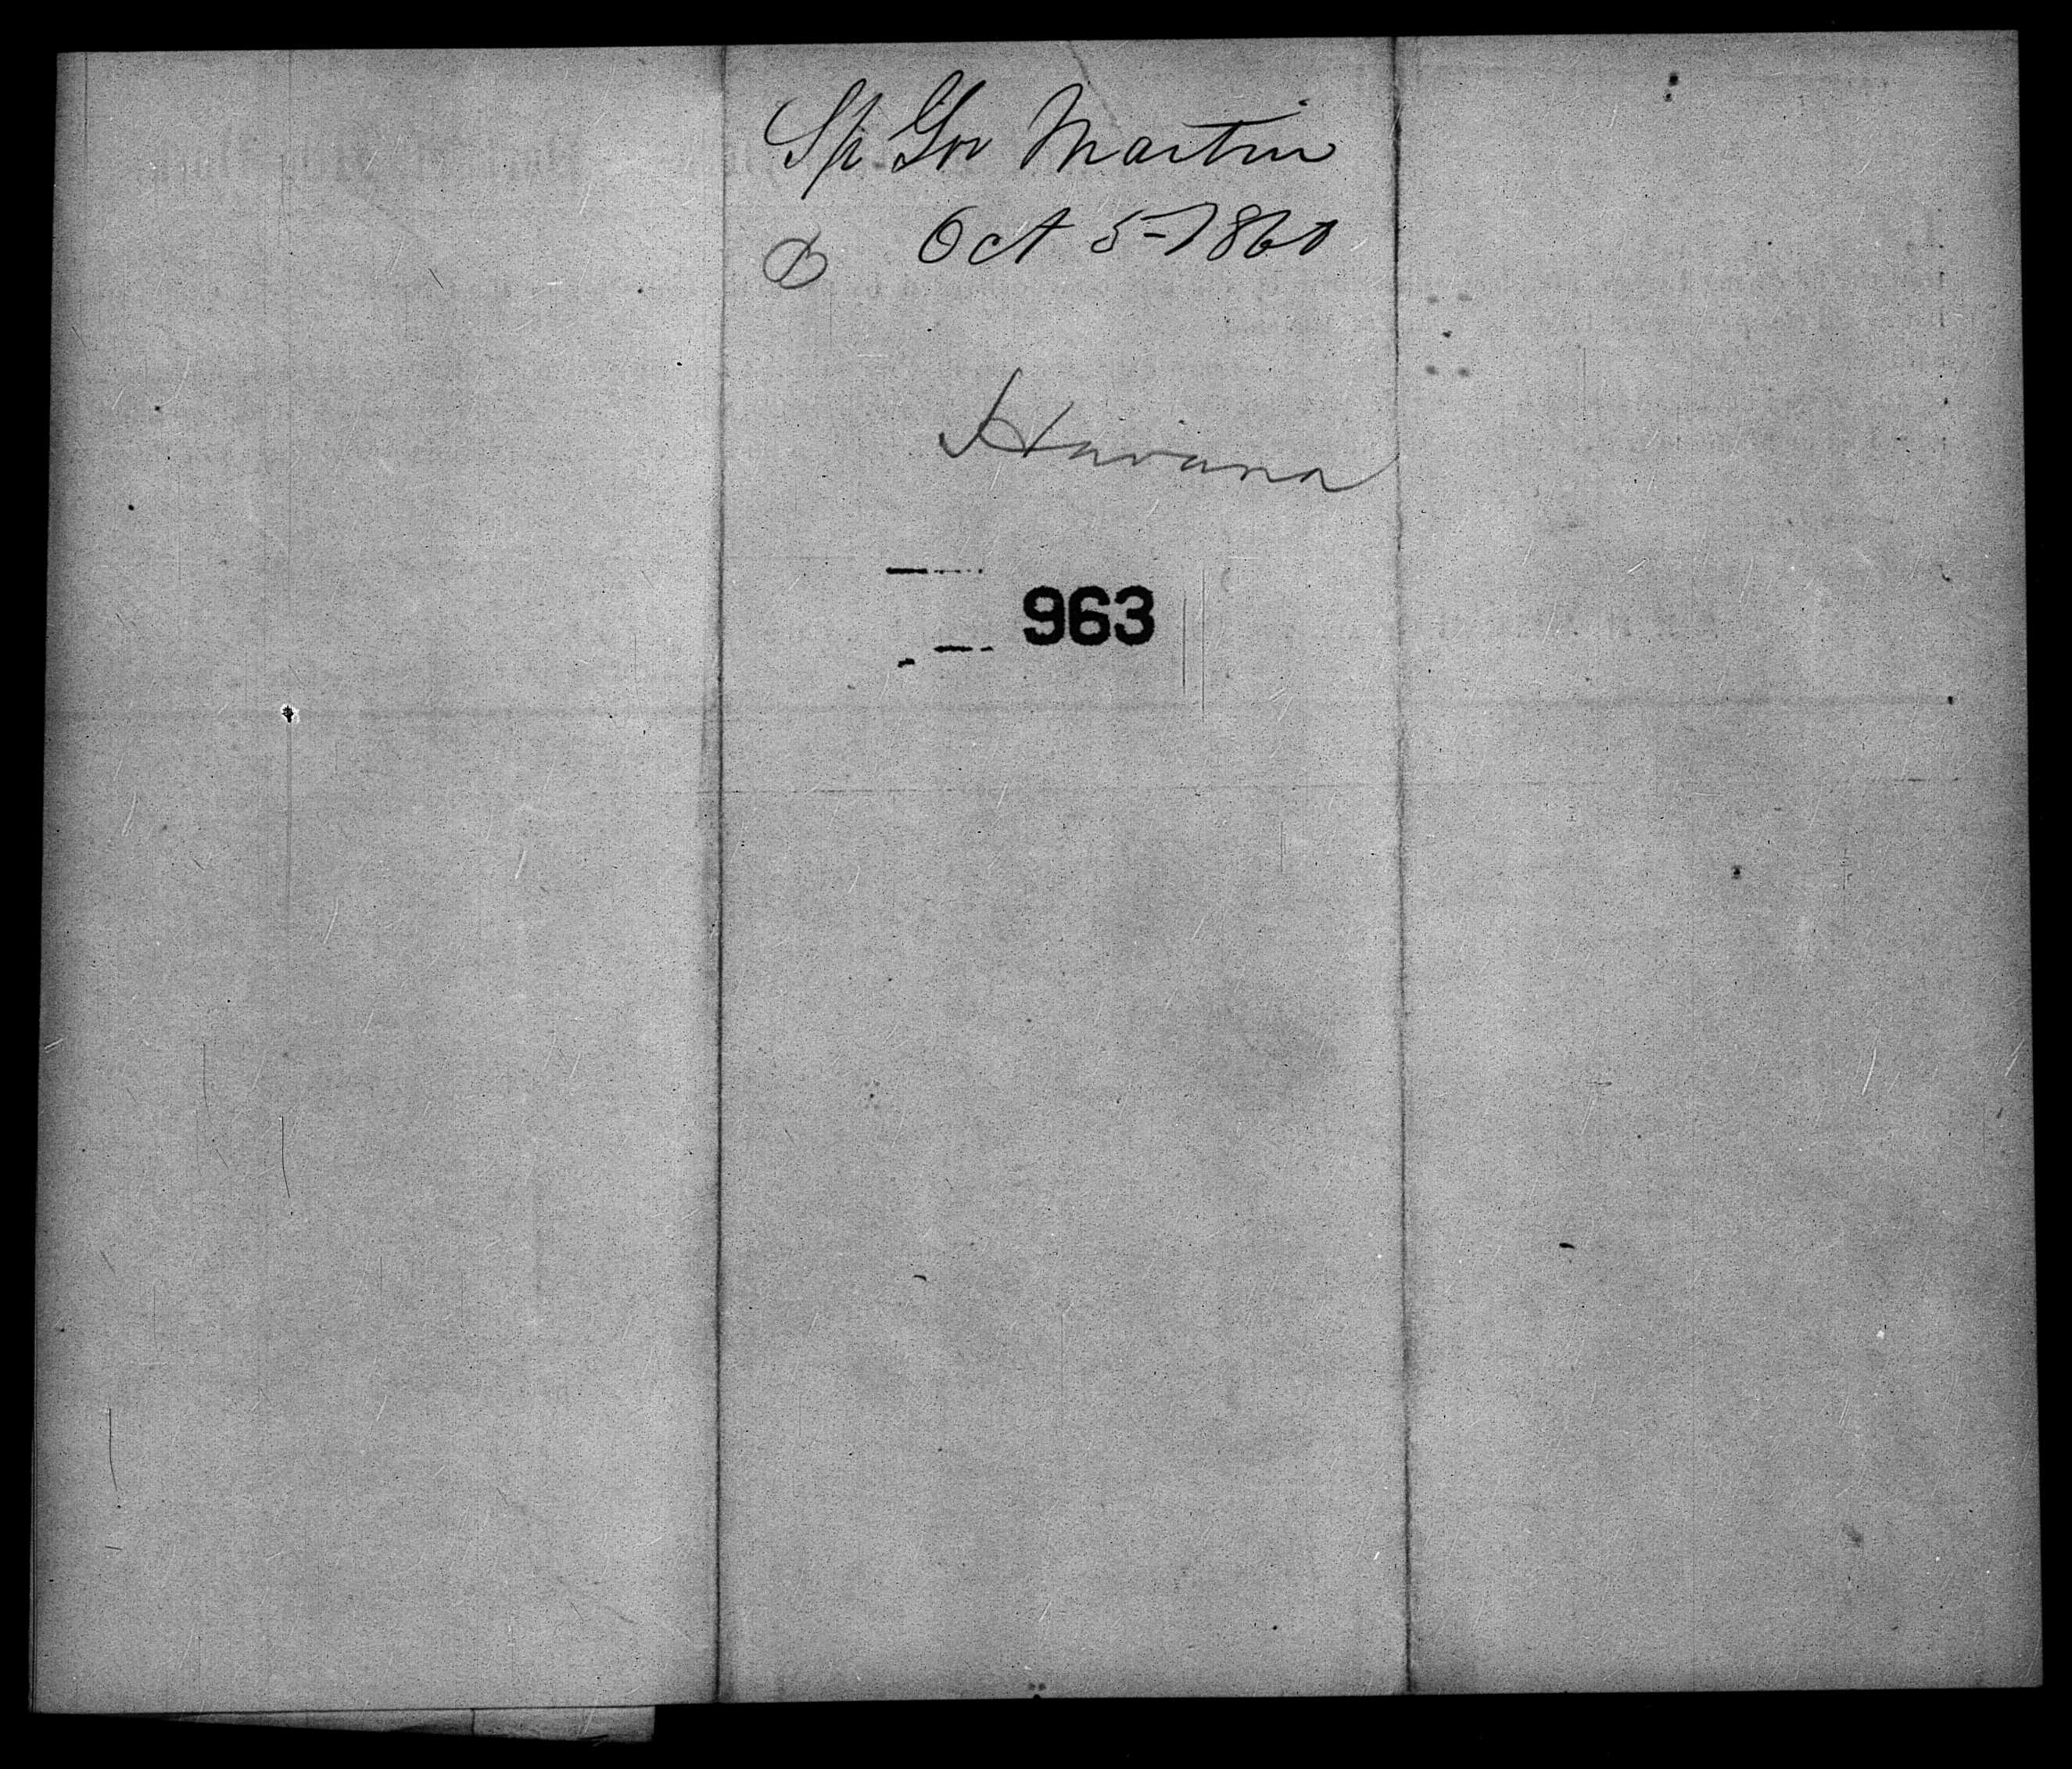 Sp Gov Martin
Oct 5-1860
B
Havana
963